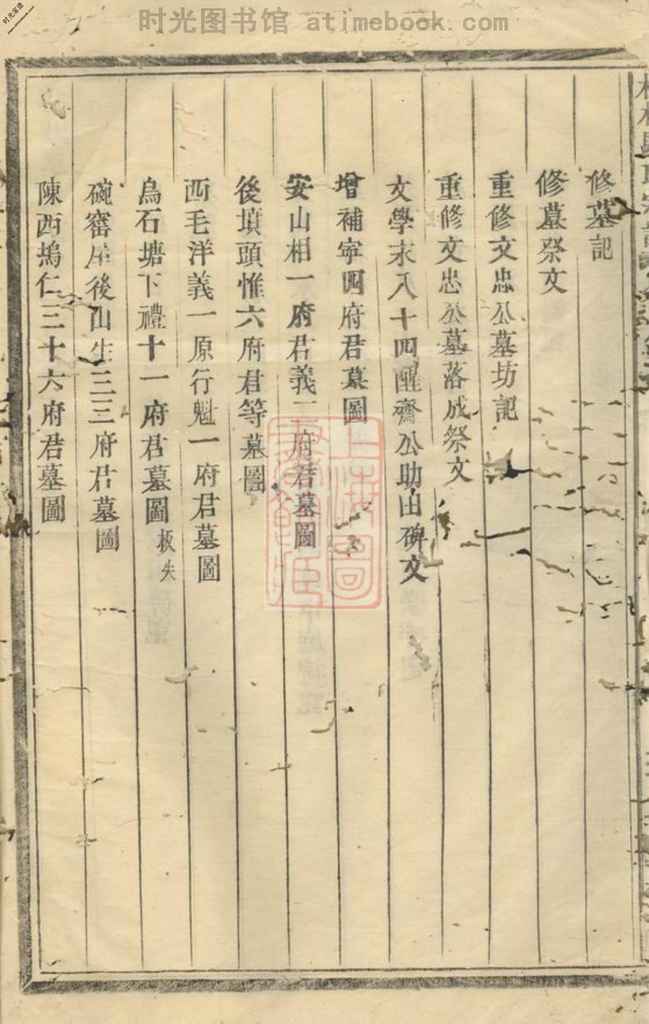 时光图书馆 atimebook.com
修墓記
修墓祭文
重修文忠公墓坊記
重修文忠公墓落成祭文
文學求八十四醒齋公助山碑文
增補寧四府君墓圖
安山相一府君義二府君墓圖
後墳頭惟六府君等墓圖
西毛洋義一原行魁一府君墓圖
烏石塘下禮十一府君墓圖 板失
碗窰屋後山生三三府君墓圖
陳西塢仁三十六府君墓圖